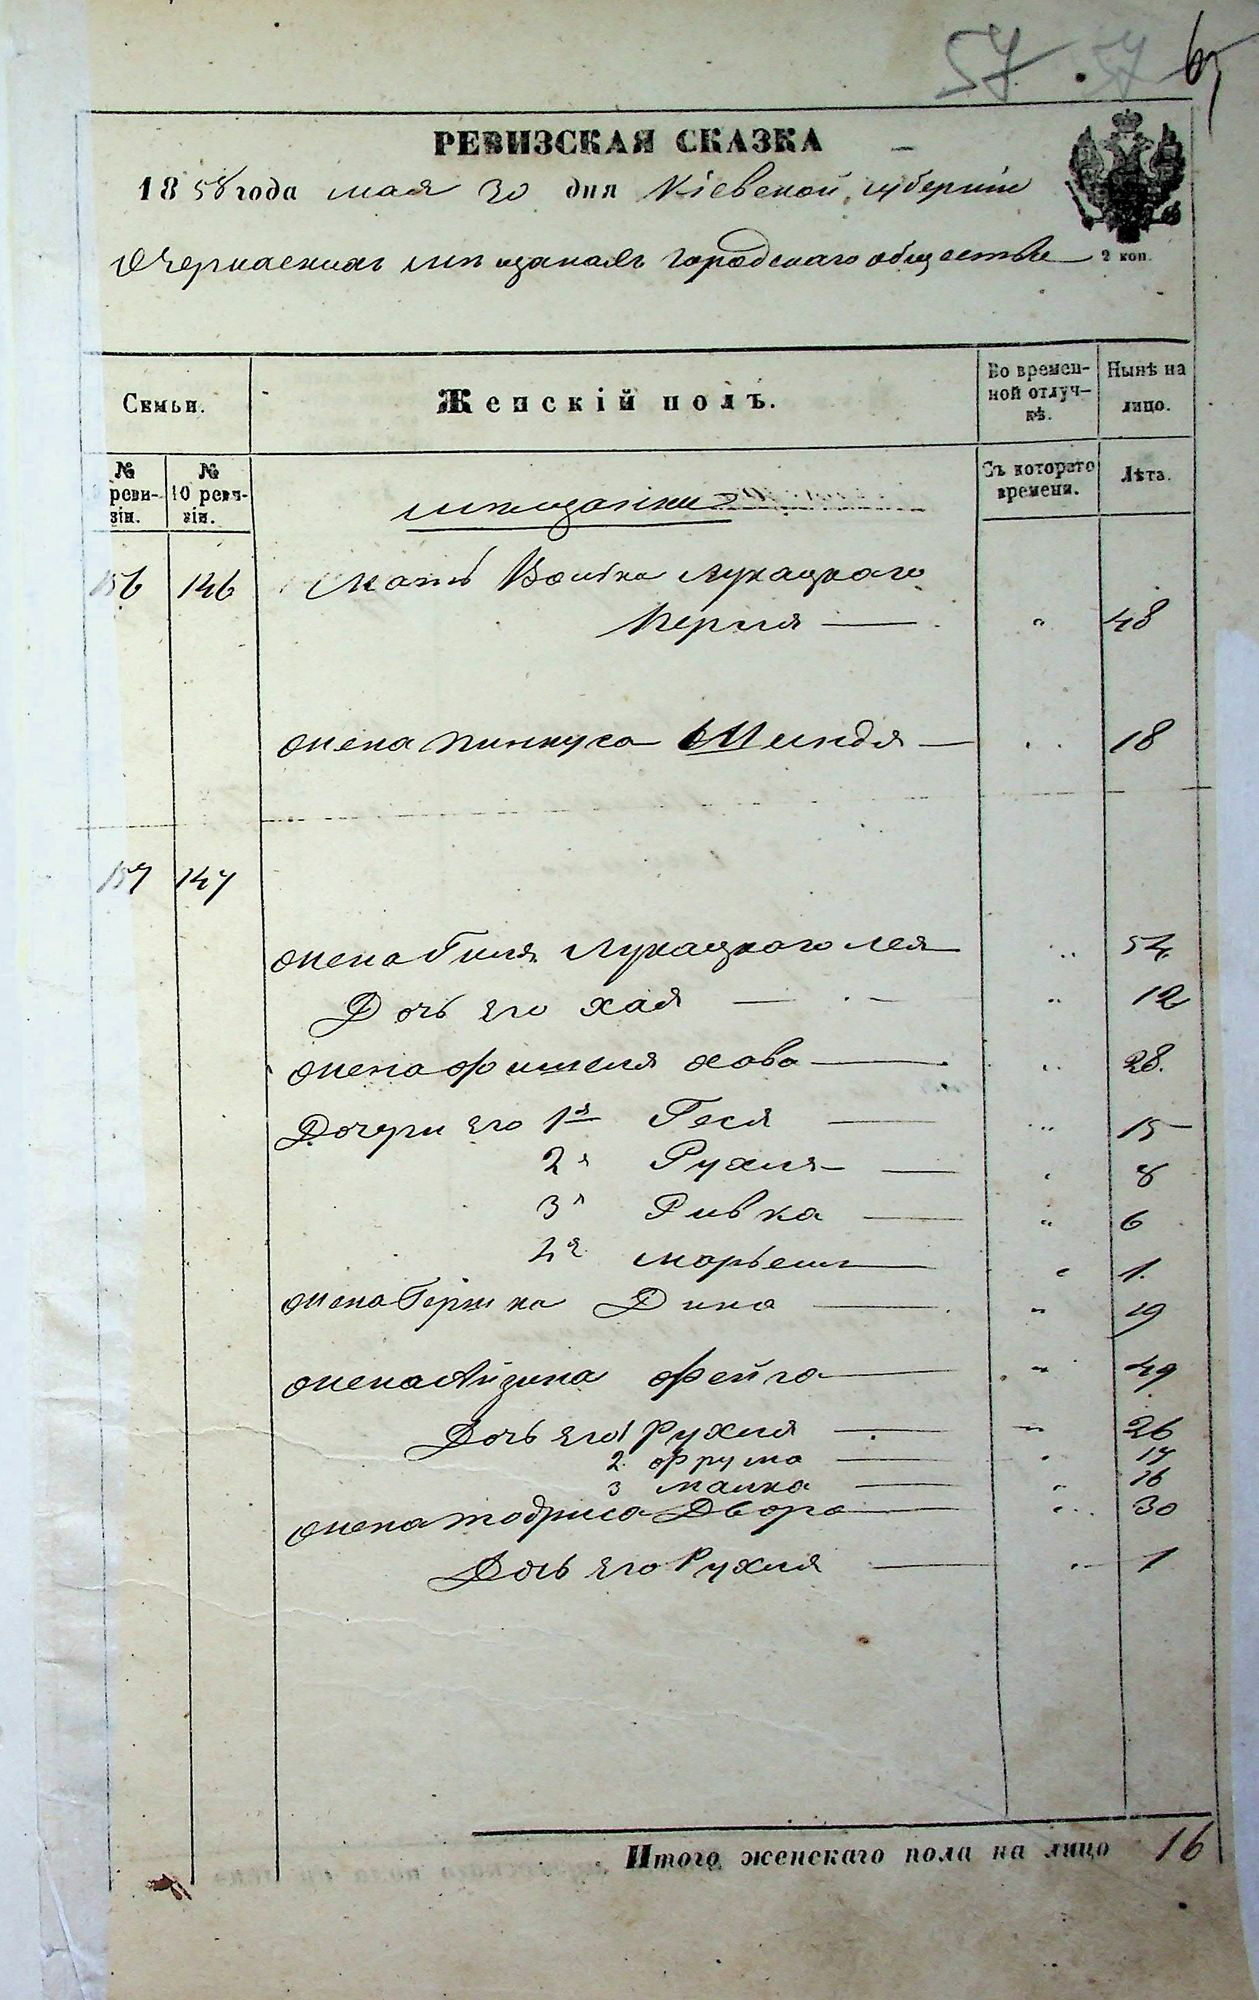 57 57 65
РЕВИЗСКАЯ СКАЗКА
1858 года мая 30 дня Кіевской губерніи
О Черкаскихъ мѣщанахъ городскаго общества
2 коп.
Семьи.
Женскій полъ.
Во времен-
ной отлуч-
кѣ.
Нынѣ на
лицо.
№
реви-
зіи.
№
10 реви-
зіи.
мѣщанки
Съ котораго
времени.
Лѣта.
156 146 Мать Волька Лукацкаго
Перля — " 48
жена Пинкуса Миндя — " 18
157 147
жена Гиля Лукацкаго Лея " 54
Дочь его Хая — " 12
жена Фишеля Хава — " 28.
Дочери его 1я Геся — " 15
2я Рухля — " 8
3я Ривка — " 6
4я Марьем — " 1.
жена Гершка Дина — " 19
жена Айзика Фейга — " 49
Дочь его 1 Рухля — " 26
2 Фрума — " 17
3 Малка — " 16
жена Тодриса Двора — " 30
Дочь его Рухля — " 1
Итого женскаго пола на лицо 16